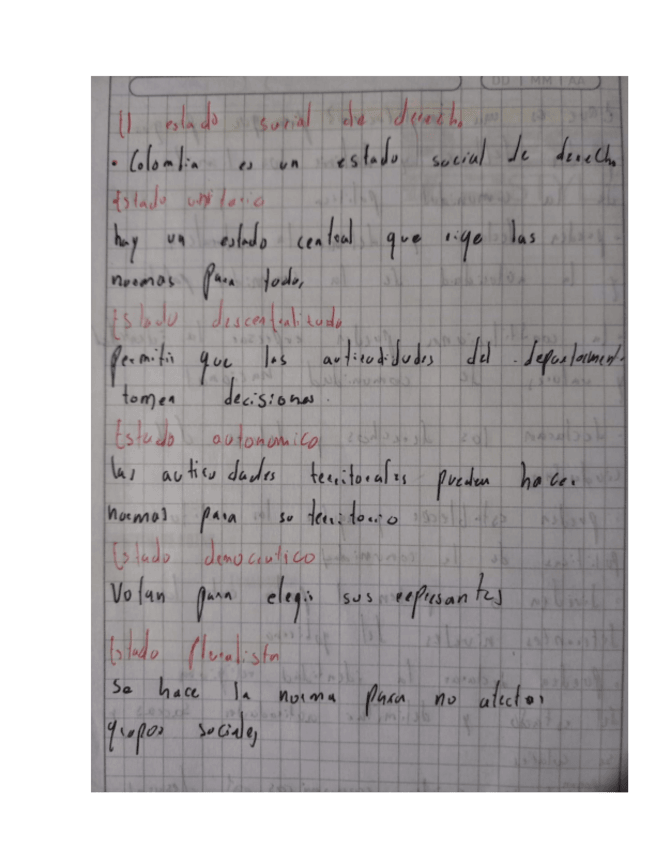 El estado social de derecho
• Colombia es un estado social de derecho
Estado unitario
hay un estado central que rige las
normas para todos
Estado descentralizado
Permitir que las autoridades del departament
tomen decisiones.
Estado autonomico
las autoridades territoriales pueden hacer
normas para su territorio
Estado democratico
Votan para elegir sus represantes
Estado pluralista
Se hace la norma para no afectar
grupos sociales